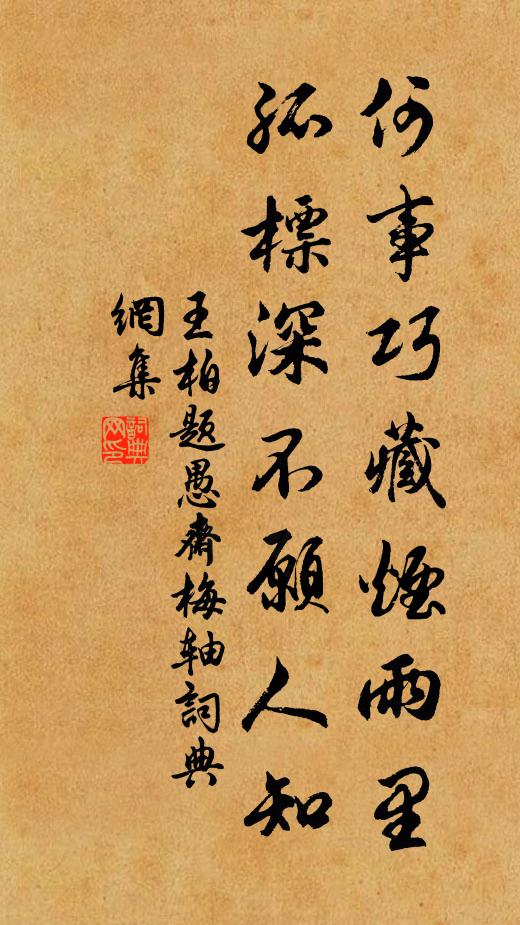 何事巧藏煙雨里
孤標深不願人知
王柏題愚齋梅軸詞典
網集
詞典網印